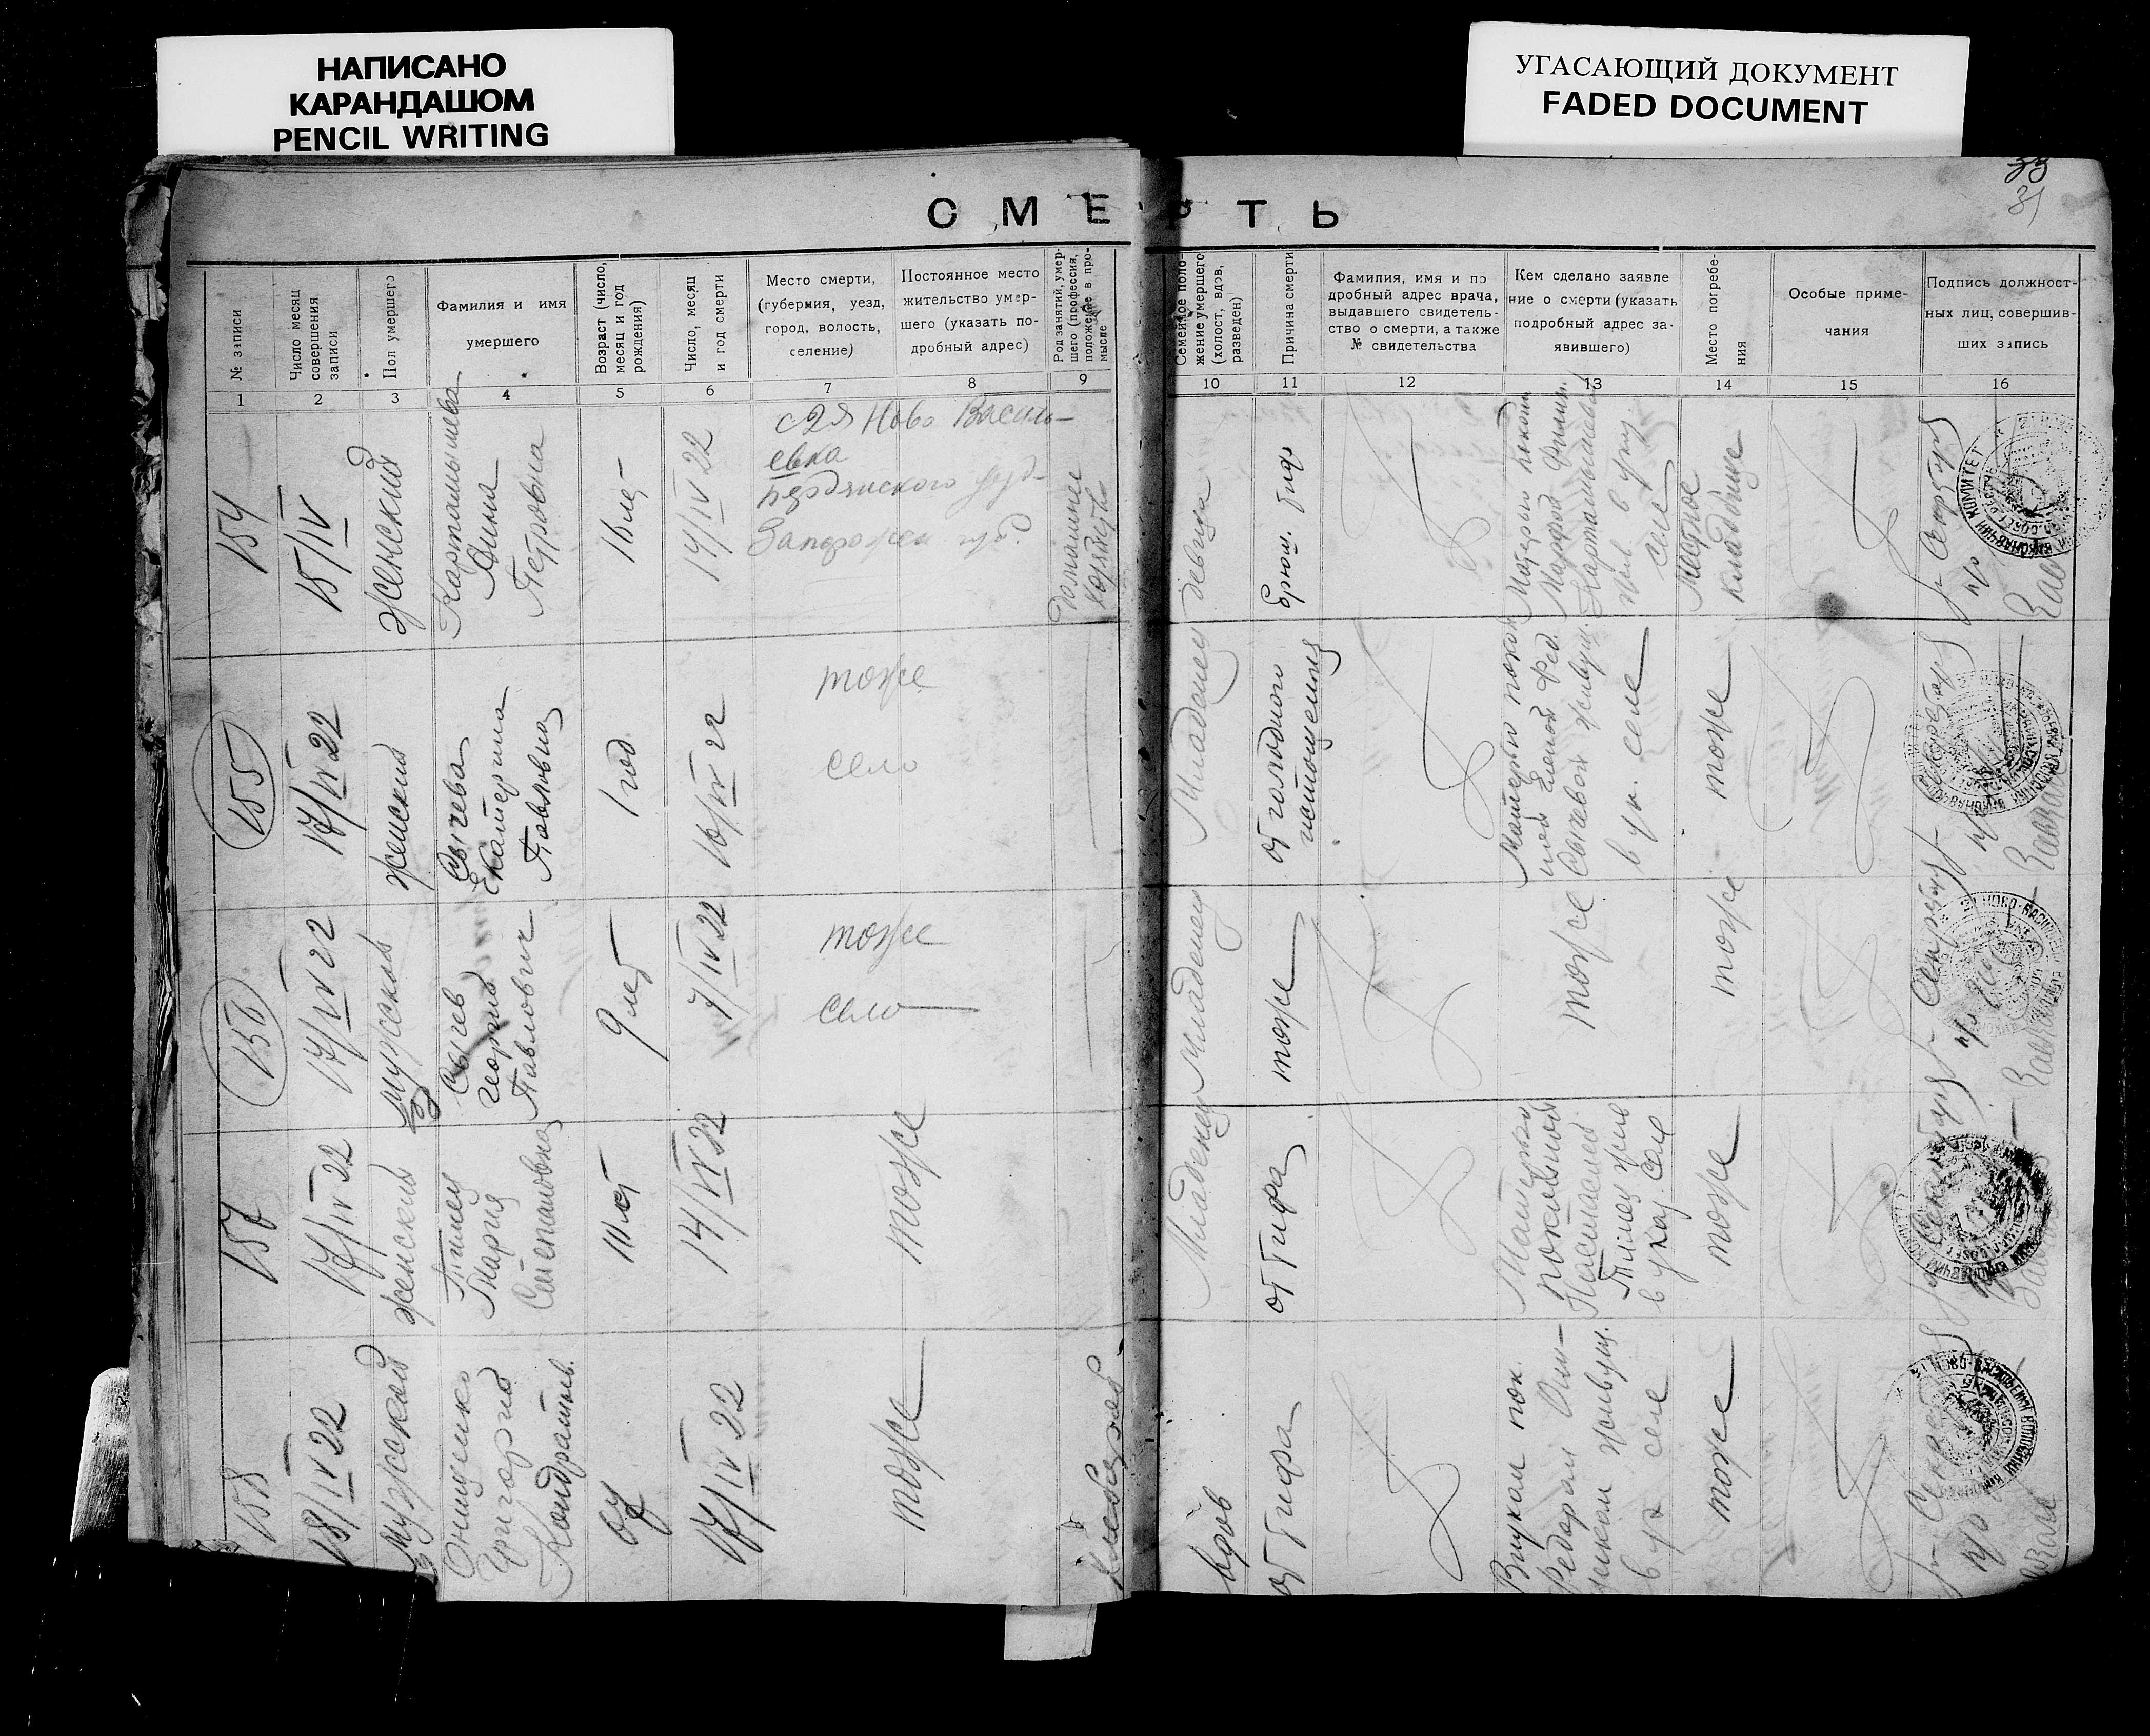 НАПИСАНО
КАРАНДАШОМ
PENCIL WRITING
УГАСАЮЩИЙ ДОКУМЕНТ
FADED DOCUMENT
33
31
СМЕРТЬ
№ записи
Число месяц
совершения
записи
Пол умершего
Фамилия и имя
умершего
Возраст (число,
месяц и год
рождения)
Число, месяц
и год смерти
Место смерти,
(губермия, уезд,
город, волость,
селение)
Постоянное место
жительство умер-
шего (указать по-
дробный адрес)
Род занятий, умер-
шего (профессия,
положение в про-
мысле
Семейное поло-
жение умершего
(холост, вдов,
разведен)
Причина смерти
Фамилия, имя и по
дробный адрес врача,
выдавшего свидетель-
ство о смерти, а также
№ свидетельства
Кем сделано заявле
ние о смерти (указать
подробный адрес за-
явившего)
Место погребе-
ния
Особые приме-
чания
Подпись должност-
ных лиц, совершив-
ших запись
1 2 3 4 5 6 7 8 9 10 11 12 13 14 15 16
154
15/IV
Женский
Карталышева
Анна
Петровна
16 лет
14/IV 22
Ново Василь-
евка
Бердянского уезд-
Запорожск губ.
Домашнее
хозяйство
девица
брюш. тиф
Матерью покойн
Марфой Филип.
Карталышевой
жив в
селе
Местное
кладбище
Секретарь
155
17/IV 22
женский
Сычева
Екатерина
Павловна
1 год
16/IV 22
тоже
село
Младенец
от голодного
истощения
Матерью покой
ной Еленой Фед.
Сычевой живущ.
в ук. селе
тоже
Секретарь
156
17/IV 22
мужской
Сычев
Георгий
Павлович
9 лет
7/IV 22
тоже
село
Младенец
тоже
тоже
тоже
Секретарь
157
17/IV 22
женский
Мария
Степановна
14/IV 22
тоже
Младенец
от Тифа
Матерью
покойной
жив
в указ. селе
тоже
Секретарь
158
18/IV 22
Мужской
Онищенко
Григорий
Кондратьев.
67
17/IV 22
тоже
Хлебороб
вдов
от Тифа
Внуком пок.
Федором Они-
щенком живущ.
в ук селе
тоже
Секрет